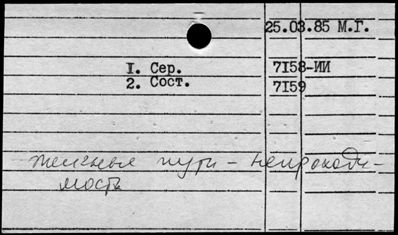 25.03.85 М.Г.
1. Сер. 7158-ИИ
2. Сост. 7159
желчные пути – непроходи-
мость